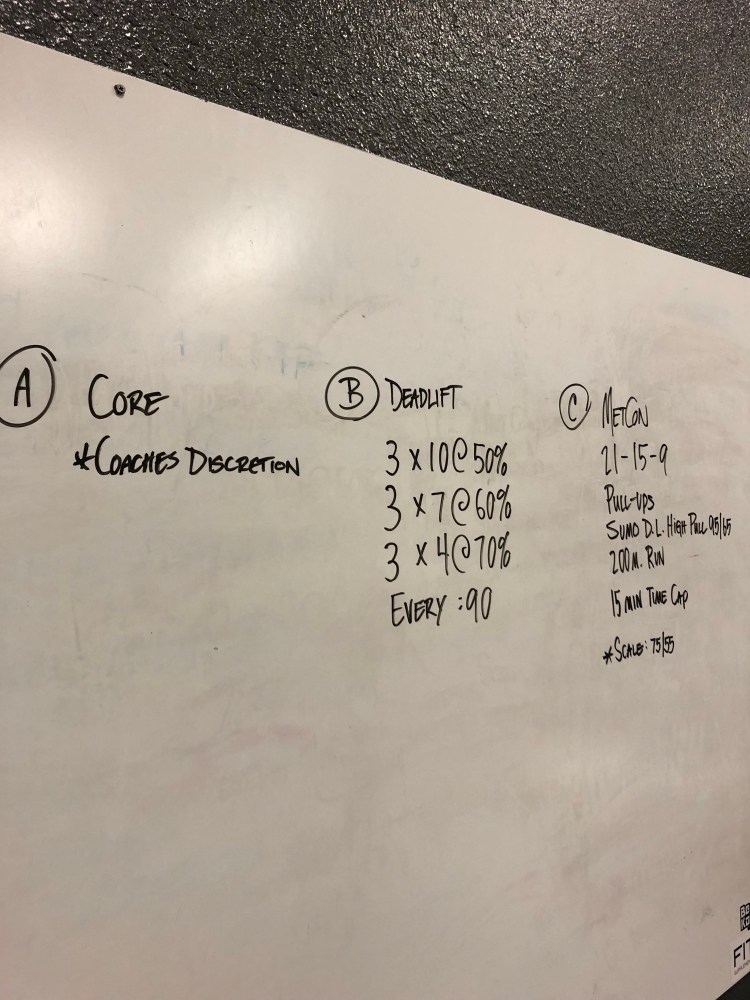 A
CORE
*COACHES DISCRETION
B DEADLIFT
3 x 10@50%
3 x 7@60%
3 x 4@70%
EVERY :90
C METCON
21-15-9
PULL-UPS
SUMO D.L. HIGH PULL 95/65
200M. RUN
15 MIN TIME CAP
*SCALE: 75/55
FIT